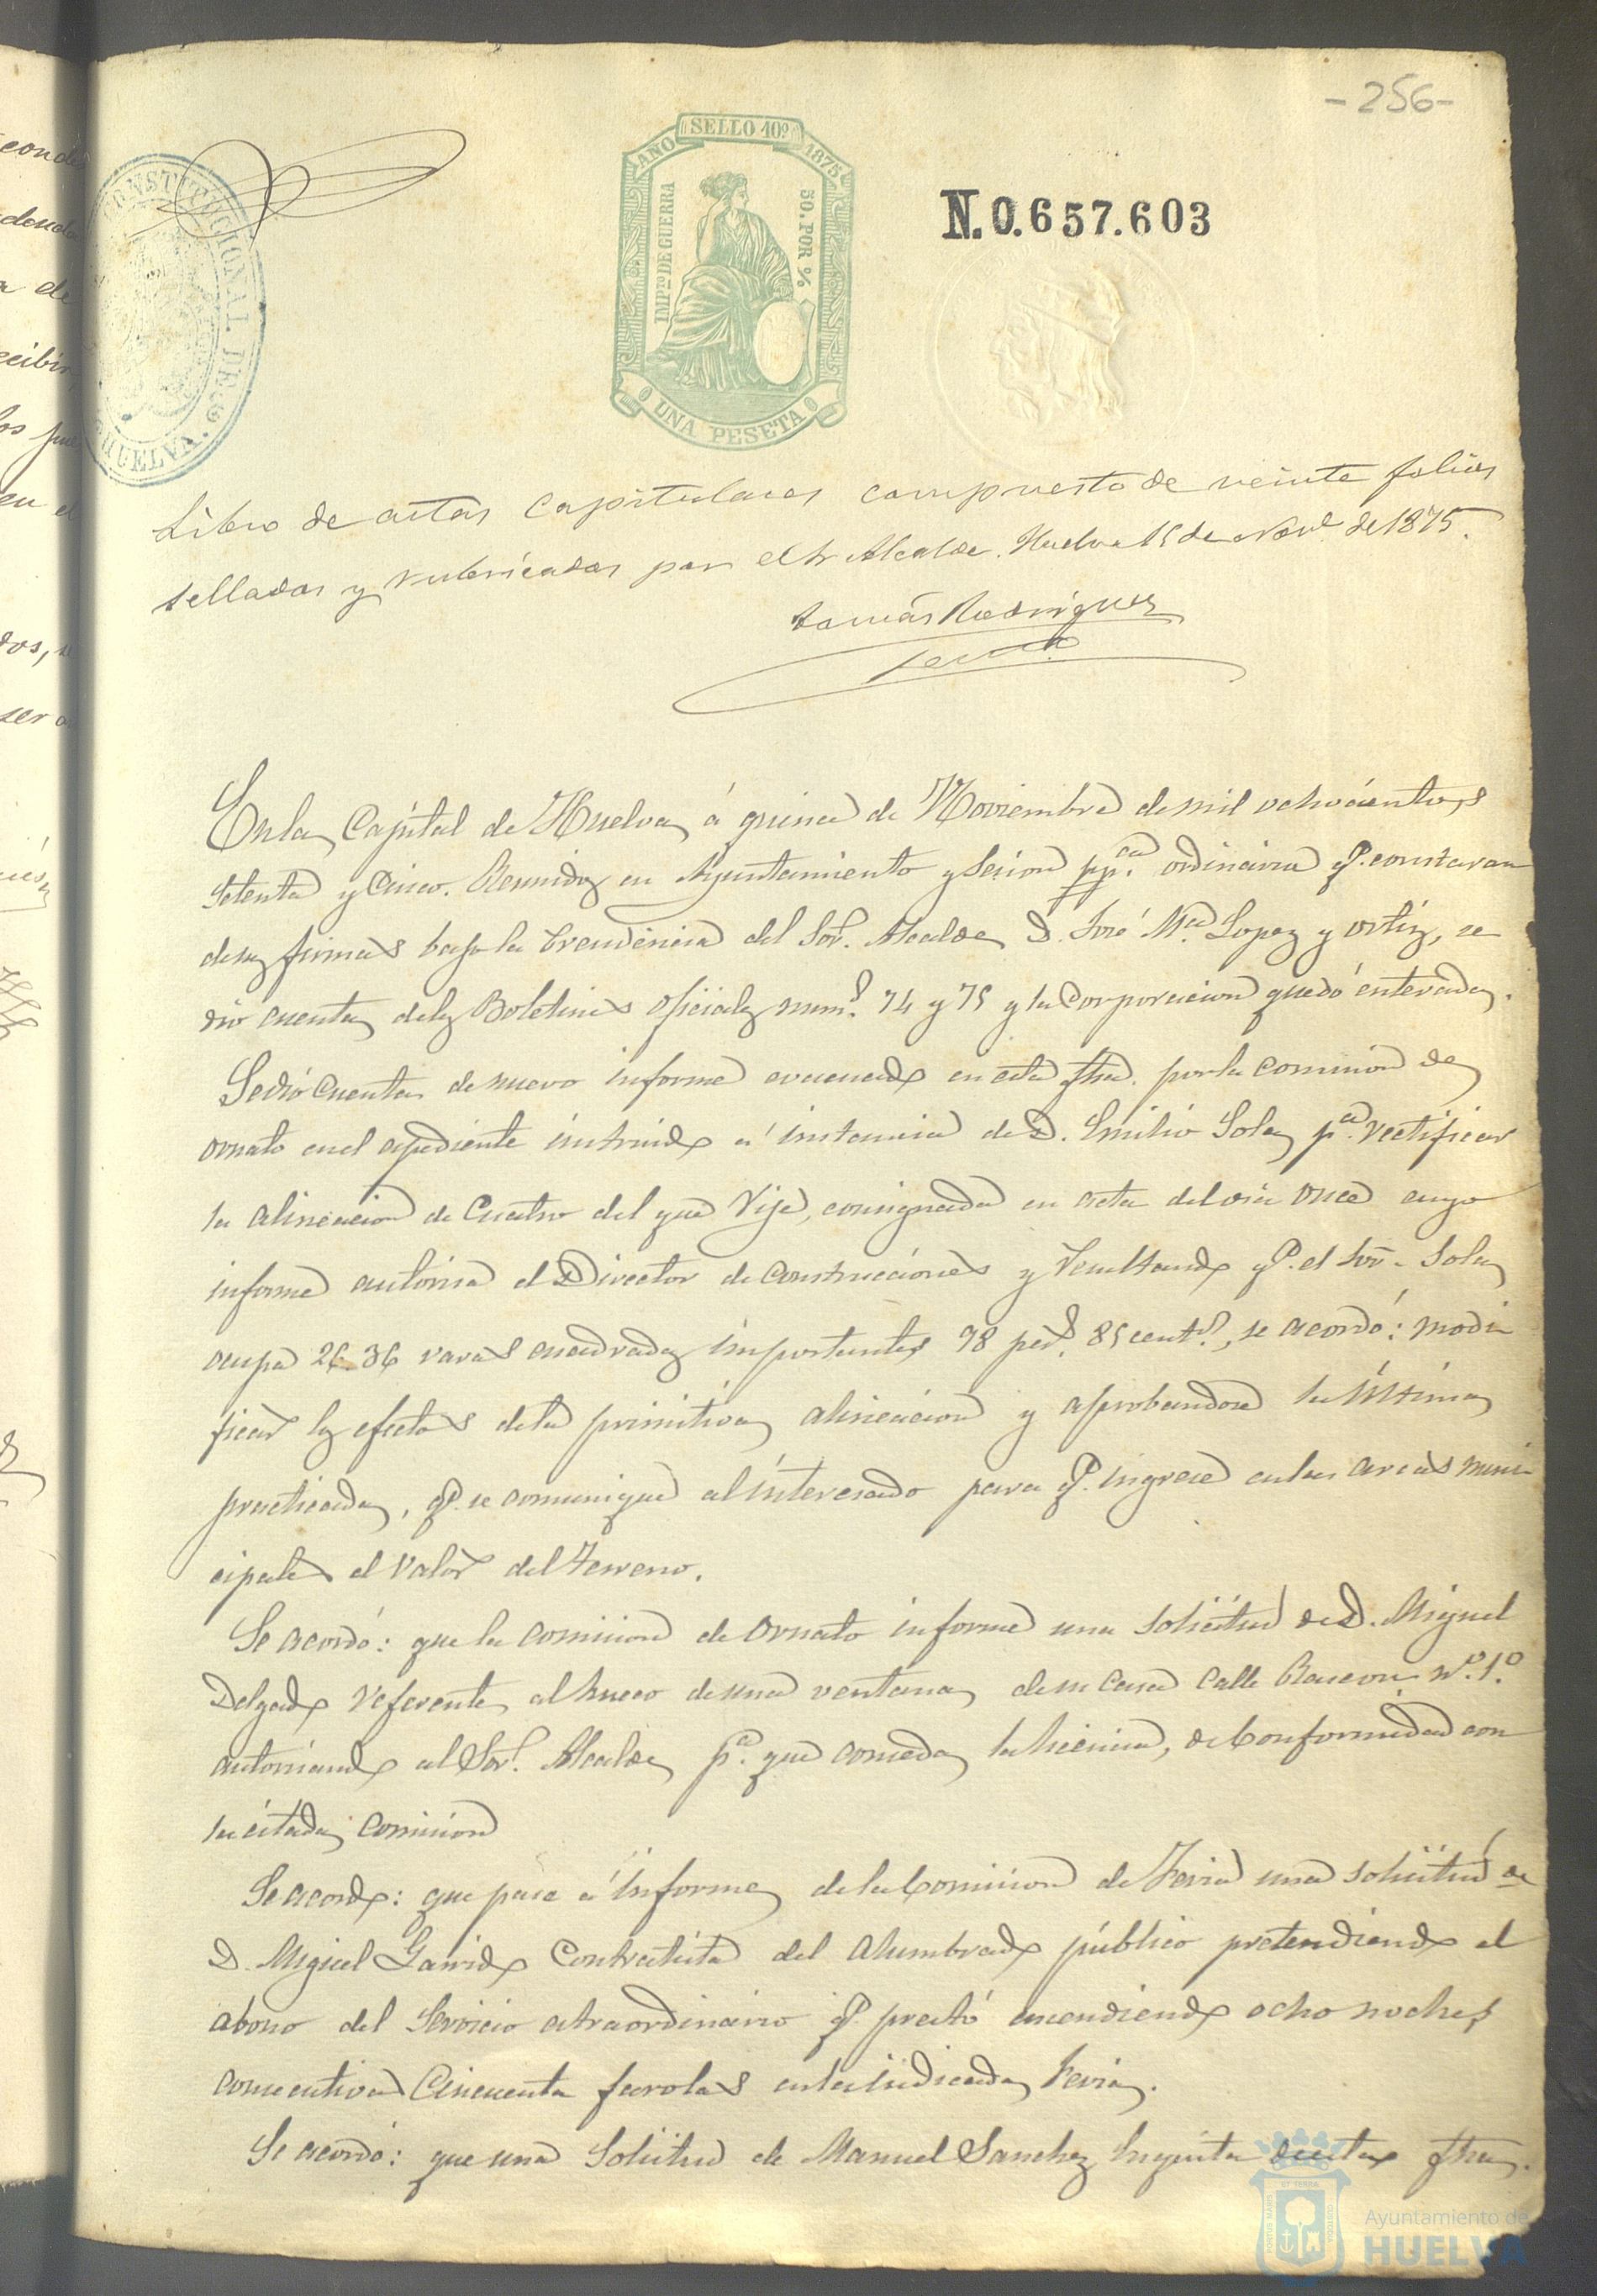 -256-
CONSTITUCIONAL DE
HUELVA.
SELLO 10º
AÑO 1875
IMPTO DE GUERRA
50. POR %
UNA PESETA
N.0.657.603
Libro de actas Capitulares compuesto de veinte folios
sellados y rubricados por el Sr Alcalde. Huelva 15 de Nove. de 1875.
Tomás Rodriguez
En la Capital de Huelva á quince de Noviembre de mil ochocientos
setenta y Cinco. Reunidos en Ayuntamiento y Sesion ppca. ordinaria qe. constaran
de sus firmas bajo la Precidencia del Sor. Alcalde D. José Ma. Lopez y Ortiz, se
dió cuenta de los Boletines oficiales nums. 74 y 75 y la Corporacion quedó enterada.
Se dió Cuenta de nuevo informe evacuado en esta fha. por la comision de
ornato en el espediente instruido á instancia de D. Emilio Sola pa. rectificar
la alineacion de Cuatro del que Rije, consignada en acta del dia once cuyo
informe autorisa el Director de Construcciones y Resultando qe. el Sor. Sola
ocupa 26 36 varas cuadradas importantes 78 pess. 85 cents., se acordó: modi
ficar los efectos de la primitiva alineacion y aprobandose la última
practicada, qe. se comunique al interesado para qe. ingrese en las arcas muni
cipales el Valor del terreno.
Se acordó: que la comision de Ornato informe una solicitud de D. Miguel
Delgado Referente al hueco de una ventana de su casa calle Rascon nº. 1.º
autorisando al Sor. Alcalde pa. que conceda la licencia, de Conformidad con
la citada Comision
Se acordo: que pase á informe de la Comision de Feria una solicitud de
D. Miguel Garrido Contratista del alumbrado público pretendiendo el
abono del Servicio estraordinario qe. prestó encendiendo ocho noches
consecutivas Cincuenta farolas en la indicada Feria.
Se acordó: que una Solicitud de Manuel Sanchez fha.
Ayuntamiento de
HUELVA